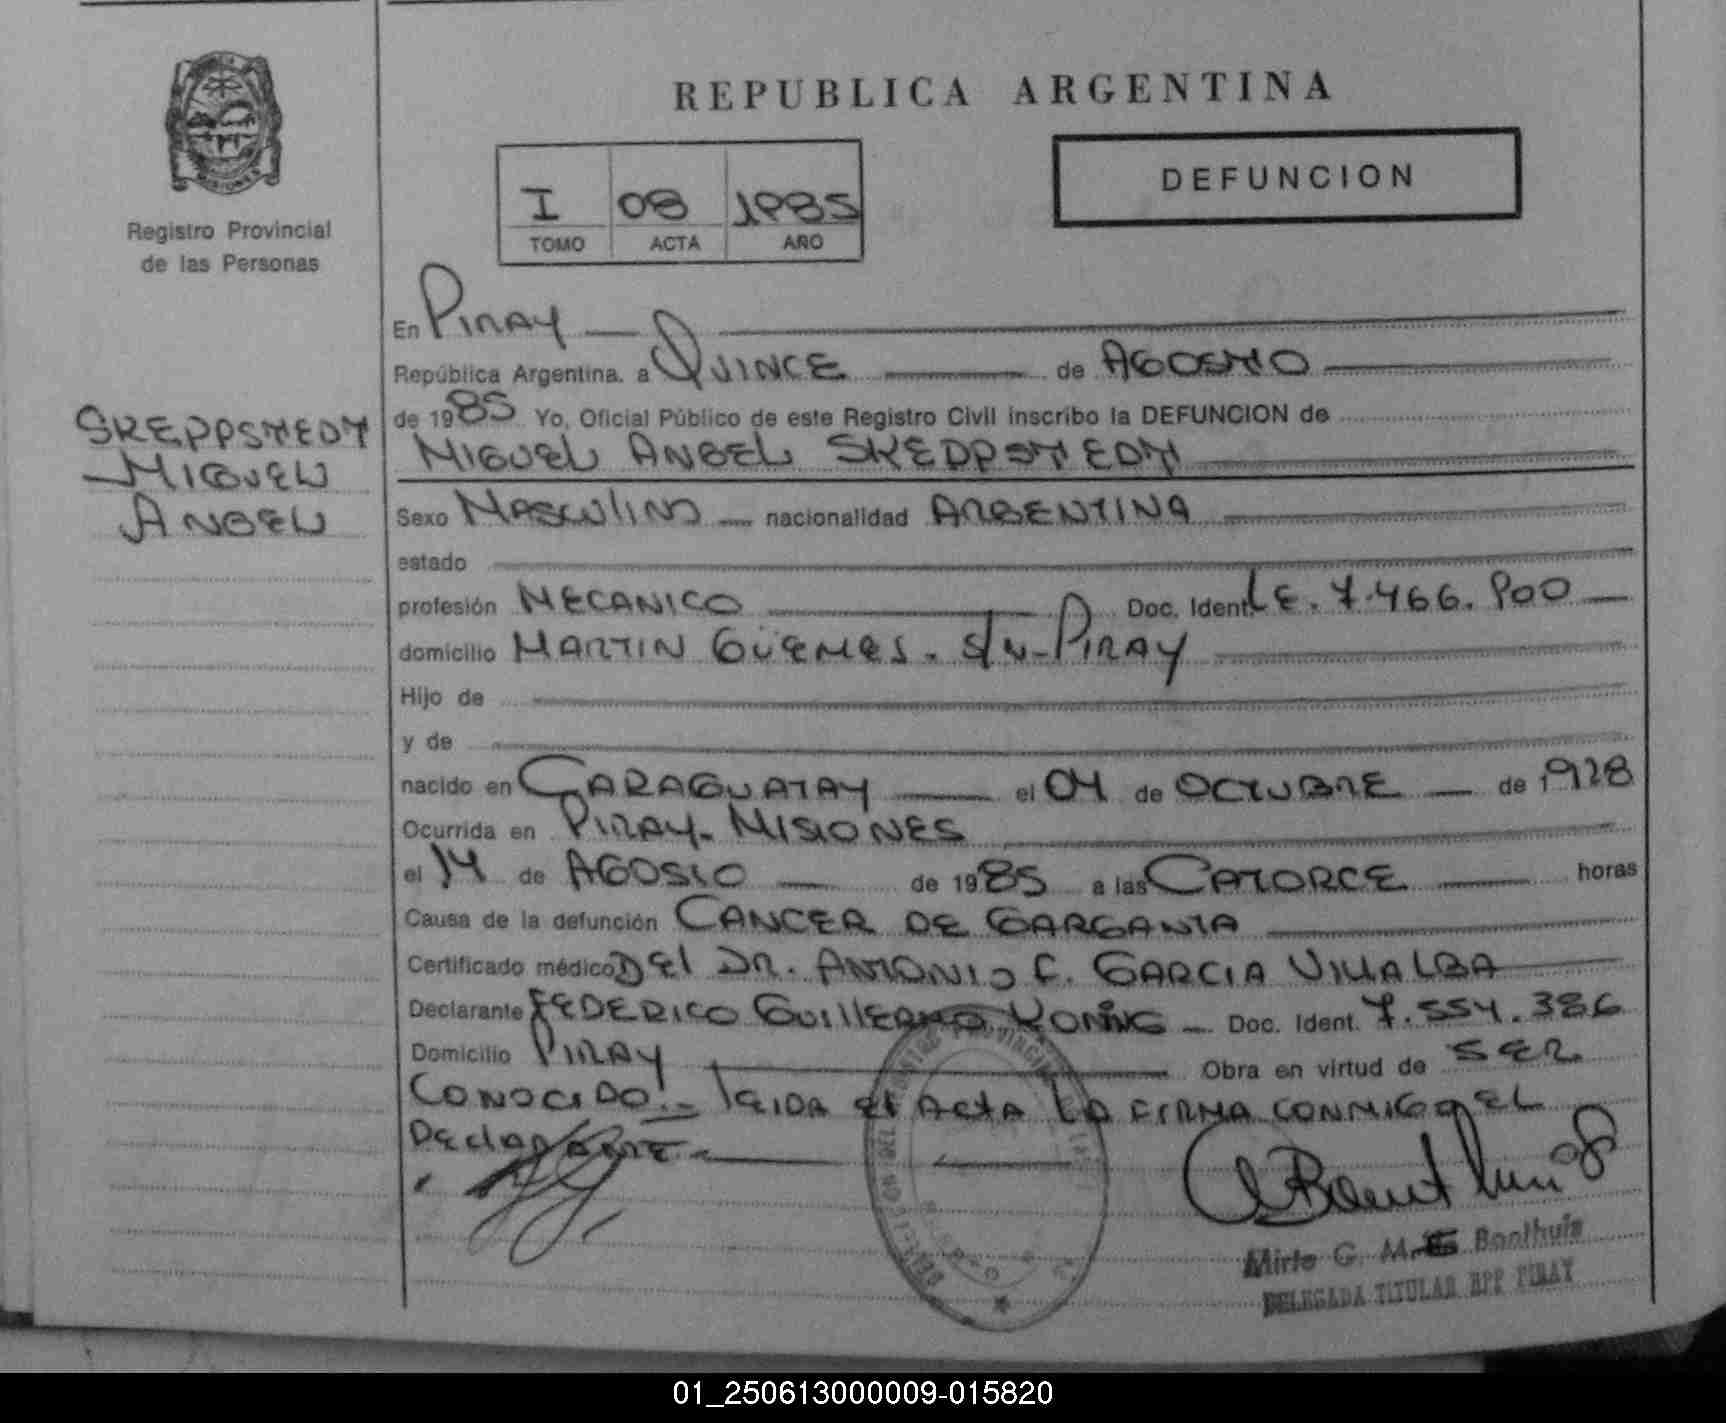 REPUBLICA ARGENTINA
DEFUNCION
I 08 1985
TOMO ACTA AÑO
MISIONES
Registro Provincial
de las Personas
SKEPPSTEDT
MIGUEL
ANGEL
En PIRAY
República Argentina, a QUINCE de AGOSTO
de 1985 Yo, Oficial Público de este Registro Civil inscribo la DEFUNCION de
MIGUEL ANGEL SKEPPSTEDT
Sexo MASCULINO nacionalidad ARGENTINA
estado
profesión MECANICO Doc. Ident. L.E. 7.466.900
domicilio MARTIN GÜEMES. S/N-PIRAY
Hijo de
y de
nacido en CARAGUATAY el 04 de OCTUBRE de 1928
Ocurrida en PIRAY-MISIONES
el 14 de AGOSTO de 1985 a las CATORCE horas
Causa de la defunción CANCER DE GARGANTA
Certificado médico DEL DR. ANTONIO F. GARCIA VILLALBA
Declarante FEDERICO GUILLERMO KONIG Doc. Ident. 7.554.386
Domicilio PIRAY Obra en virtud de SER
CONOCIDO.- LEIDA EL ACTA LA FIRMA CONMIGO EL
DECLARANTE.-
Mirta G. M. Bonthuis
DELEGADA TITULAR RPP PIRAY
01_250613000009-015820